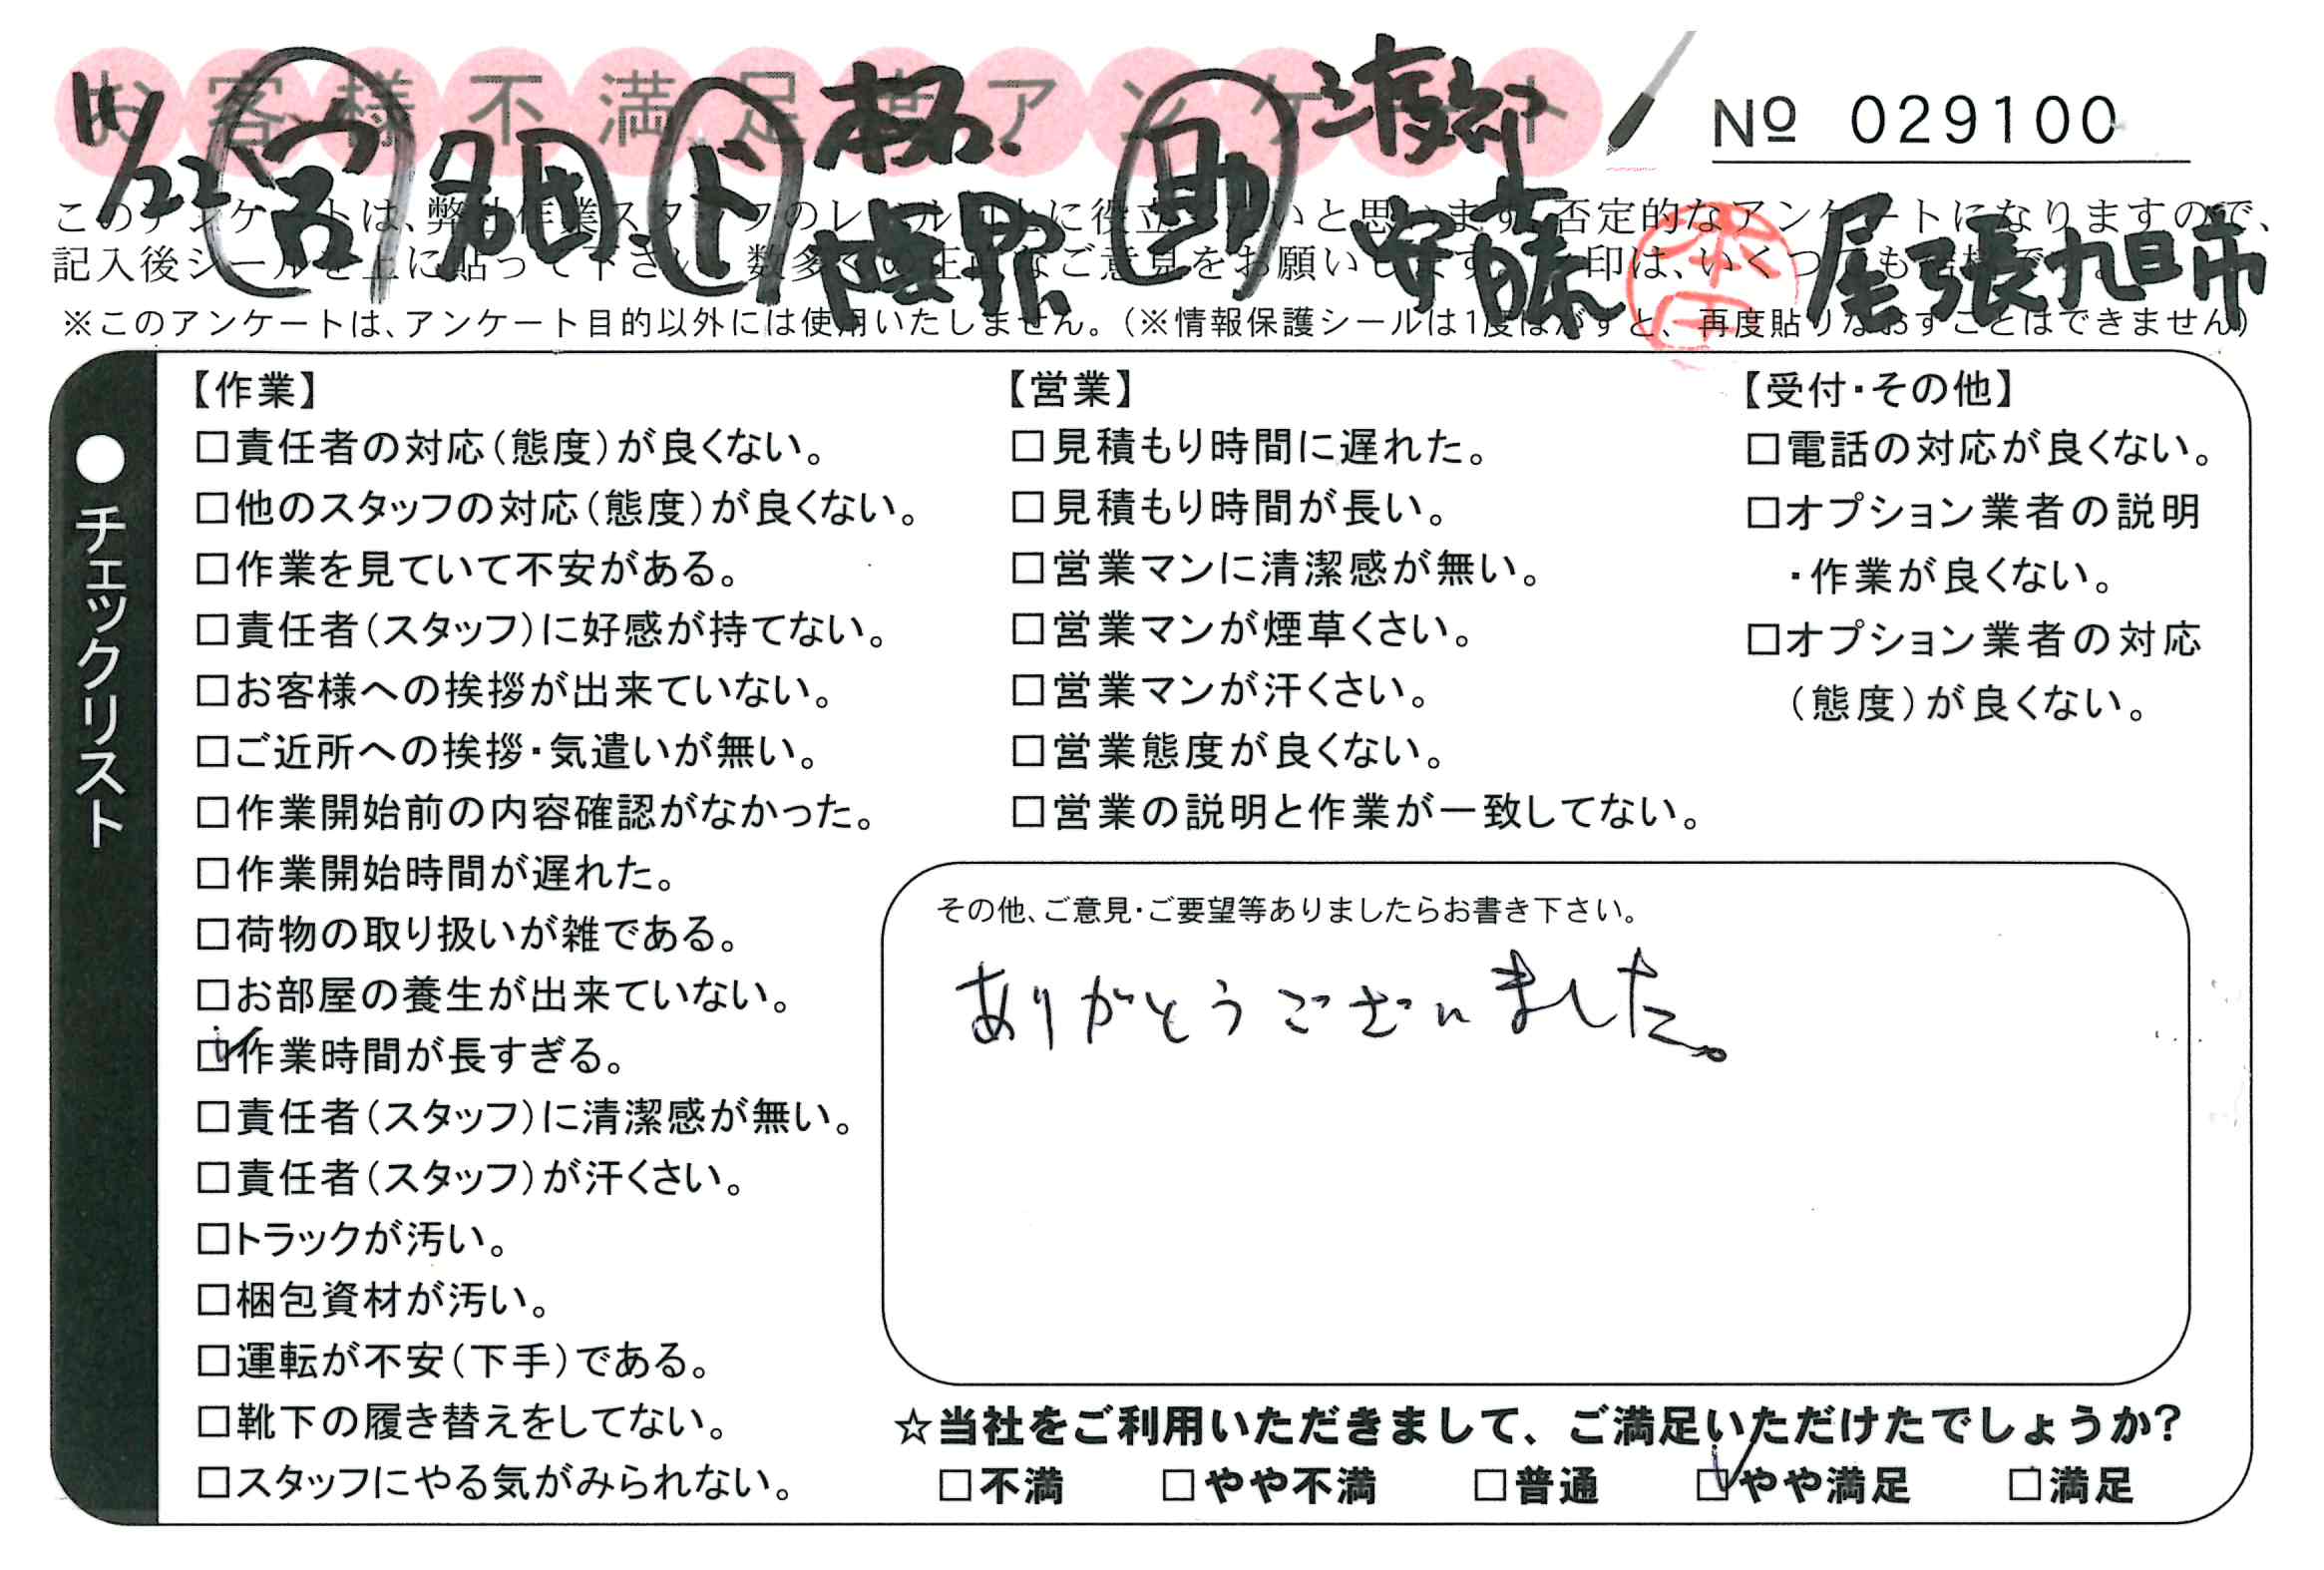 お客様不満足度アンケート
No 029100
11/22 営 名田 ド 柘 植野 助 渡部 安藤 本日 尾張旭市
このアンケートは、弊社作業スタッフのレベル向上に役立てたいと思います。否定的なアンケートになりますので、
記入後シールを上に貼って下さい。数多くの正直なご意見をお願いします。
※このアンケートは、アンケート目的以外には使用いたしません。（※情報保護シールは1度はがすと、再度貼りなおすことはできません）
●チェックリスト
【作業】
□責任者の対応（態度）が良くない。
□他のスタッフの対応（態度）が良くない。
□作業を見ていて不安がある。
□責任者（スタッフ）に好感が持てない。
□お客様への挨拶が出来ていない。
□ご近所への挨拶・気遣いが無い。
□作業開始前の内容確認がなかった。
□作業開始時間が遅れた。
□荷物の取り扱いが雑である。
□お部屋の養生が出来ていない。
☑作業時間が長すぎる。
□責任者（スタッフ）に清潔感が無い。
□責任者（スタッフ）が汗くさい。
□トラックが汚い。
□梱包資材が汚い。
□運転が不安（下手）である。
□靴下の履き替えをしてない。
□スタッフにやる気がみられない。
【営業】
□見積もり時間に遅れた。
□見積もり時間が長い。
□営業マンに清潔感が無い。
□営業マンが煙草くさい。
□営業マンが汗くさい。
□営業態度が良くない。
□営業の説明と作業が一致してない。
【受付・その他】
□電話の対応が良くない。
□オプション業者の説明
・作業が良くない。
□オプション業者の対応
（態度）が良くない。
その他、ご意見・ご要望等ありましたらお書き下さい。
ありがとうございました。
☆当社をご利用いただきまして、ご満足いただけたでしょうか?
□不満 □やや不満 □普通 ☑やや満足 □満足